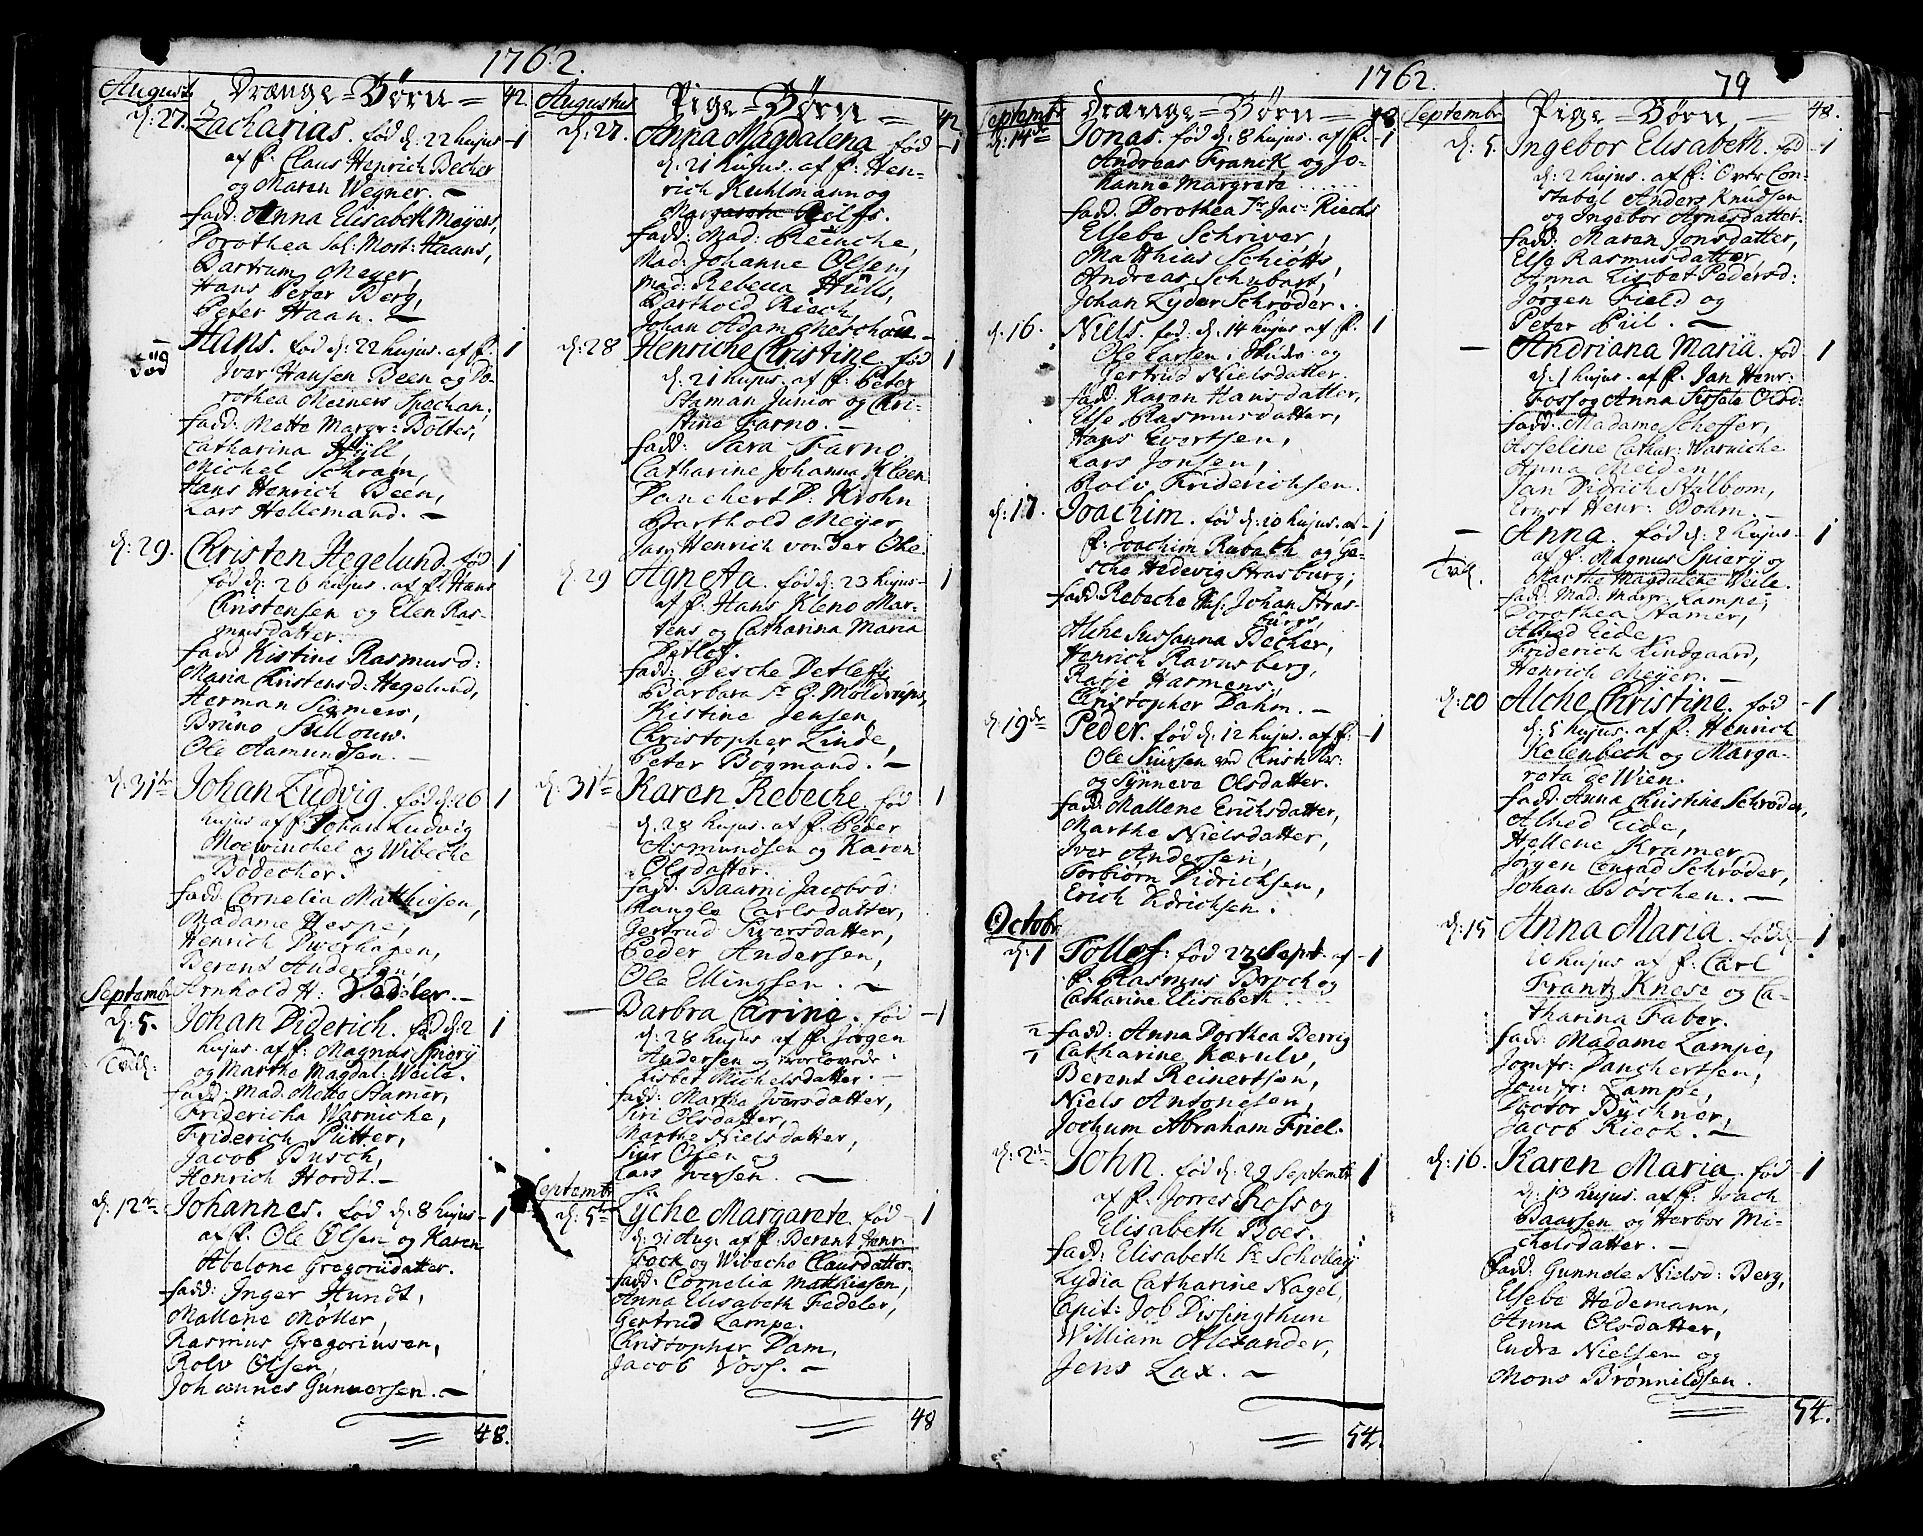 1762.
Augusti Drænge=Børn= 42
d: 27. Zacharias. fød d: 22 hujus 1
af f: Claus Henrich Becher
og Maren Wegner. –
fadd: Anna Elisabeth Meyers,
Dorothea Sal: Mort: Haans,
Bartrum Meyer,
Hans Peter Berg,
Peter Haan. –
død Hans. fød d: 22 hujus. af f. 1
Iver Hansen Been og Do-
rothea Merners Spechan.
fadd: Mette Margr: Boltes,
Catharina Hyll,
Michel Schram,
Hans Henrich Been,
Lars Hellemand. –
d: 29. Christen Hegelund. fød 1
fød d: 26 hujus. af f. Hans
Christensen og Elen Ras-
musdatter.
fadd Kistine Rasmusd:
Maria Christensd: Hegelund,
Herman Siemers,
Bruno Sullouw.
Ole Aamundsen. –
d: 31te Johan Ludvig. fød d: 26 1
hujus af f: Johan Ludvig
Moewinchel og Wibeche
Bödecher.
fadd Cornelia Matthiesen,
Madame Hespe,
Henrich Dwerhagen,
Berent Andersen,
Arnhold H: Vedeler. –
Septembr
d: 5. Johan Diderich. fød d: 2 1
Tvill: hujus. af f: Magnus Spierÿ
og Martha Magdal: Weile.
fadd: Mad. Mette Stamer,
Fridericha Warniche,
Friderich Pütter,
Jacob Busch,
Henrich Hordt. –
d: 12te Johannes. fød d: 8 hujus 1
af f: Ole Olsen og Karen
Abelone Gregoriidatter.
fadd: Inger Hundt,
Mallene Møller,
Rasmus Gregoriusen,
Rolv Olsen,
Johannes Gunnersen. –
48.
Augustus Pige=Børn= 42
d: 27. Anna Magdalena fød 1
d: 21 hujus. af f: Hen-
rich Kuhlmann og
Margareta Rolfs.
fadd: Mad: Reinche,
Mad: Johanne Olsen,
Mad: Rebecca Hüll,
Barthold Risch,
Johan Adam Merschau. –
d: 28 Henriche Christine. fød 1
d: 21 hujus. af f: Peter
Staman Junior og Chri-
stine Farno. –
fadd: Sara Farno
Catharine Johanna Kleen
Danchert D. Krohn
Barthold Meyer
Jan Henrich von der Ohe.
d: 29 Agneta. fød d: 23 hujus 1
af f: Hans Kleno Mar-
tens og Catharina Maria
Detlef.
fadd: Gesche Detlefs
Barbara Sr C. Moldrups,
Kistine Jensen,
Christopher Linde,
Peter Bogmand. –
d: 31te Karen Rebeche. fød 1
d: 28 hujus. af f: Peder
Asmundsen og Karen
Olsdatter.
fadd. Baarni Jacobsd:
Rangle Carlsdatter,
Gertrud Iversdatter,
Peder Andersen,
Ole Ellingsen. –
– Barbra Carine. fød 1
d: 28 hujus af f: Jørgen
Andersen
Lisbet Michelsdatter. –
fadd: Martha Iversdatter,
Siri Olsdatter,
Marthe Nielsdatter,
Siur Olsen og
Lars Iversen. –
Septembr
d: 5te Lÿche Margarete. fød 1
d: 31 Aug: af f: Berent Henr:
Fock og Wibeche Clausdatter.
fadd: Cornelia Matthiesen,
Anna Elisabeth Fedeler,
Gertrud Lampe.
Christopher Dam,
Jacob Voss. –
48
1762. 79
Septembr Drænge=Børn= 48
d: 14de Jonas. fød d: 8 hujus. af f. 1
Andreas Franck og Jo-
hanne Margrete ......
fadd: Dorothea Sr Jac: Riechs
Elsebe Schriver,
Matthias Schiøtts
Andreas Schubart,
Johan Lyder Schrøder. .
d: 16. Niels. fød. d: 14 hujus af f. 1
Ole Larsen i Skuds og
Gertrud Nielsdatter.
fadd: Karen Hansdatter,
Else Rasmusdatter,
Hans Evertsen,
Lars Jonsen,
Rolv Friderichsen.
d: 17. Joachim. fød d: 10 hujus. af 1
f: Joachim Rubath og Ge-
sche Hedevig Strasburg;
fadd: Rebeche Sal: Johan Stras-
burgs,
Alche Sussanna Becher,
Henrich Ravnsberg,
Ratje Harmens,
Christopher Dahm. –
d: 19de Peder. fød d: 12 hujus. af f. 1
Ole Siursen ved Christk:
og Sÿnneve Olsdatter.
fadd: Mallene Erichsdatter,
Marthe Nielsdatter,
Iver Andersen,
Torbiørn Didrichsen,
Erich Didrichsen.
Octobr.
d: 1 Tollef: fød 27 Sept. af 1
f: Rasmus Broch og
Catharine Elisabeth . . .
fadd: Anna Dorthea Berrig
Catharine Kærulv,
Berent Reinertsen,
Niels Antonesen,
Jochum Abraham Friel.
d: 2de John. fød d: 29 Septembr 1
af f. Jorres Ross og
Elisabeth Boes.
fadd: Elisabeth Sr Schollaÿ
Lydia Catharine Nagel,
Capit: Job Dissingthun
William Alexander,
Jens Lax. –
54.
Septembr Pige=Børn. – 48.
d: 5 Ingebor Elisabeth. fød 1
d: 2 hujus. af f: Over Con-
stabel Anders Knudsen
og Ingebor Agnesdatter.
fadd: Maren Jonsdatter,
Else Rasmusdatter
Anna Lisbet Pedersd:
Jørgen Field og
Peter Piil. –
– Andriana Maria. fød 1
d: 1 hujus. af f: Jan Henr:
Foss og Anna Sissele Olsd:
fadd: Madame Scheffer,
Asseline Cathar: Warniche
Anna Meiden,
Jan Didrich Stalbom,
Ernst Henr: Bohm. –
– Anna. fød d: 2 hujus 1
Tvill. af f: Magnus Spierÿ og
Martha Magdalene Weile.
fadd: Mad: Margr: Lampe,
Dorothea Stamer,
Alhed Eide,
Friderich Lindgaard,
Henrich Meÿer. –
d: 20 Alche Christine. fød 1
d: 5 hujus. af f: Henrich
Kelenbech og Marga-
reta de Wien.
fadd: Anna Christine Schrøder,
Alhed Eide,
Hellene Kramer,
Jørgen Conrad Schrøder,
Johan Bøschen. –
d: 15 Anna Maria. fød d: 1
10 hujus af f: Carl
Frantz Knese og Ca-
tharina Faber.
fadd: Madame Lampe,
Jomfr: Danchertsen,
Jomfr: Lampe,
Doctor Büchner,
Jacob Risch. –
d: 16. Karen Maria. fød 1
d: 13 hujus. af f: Joach
Baarsen og Herbor Mi-
chelsdatter. –
fadd: Gunnele Nielsd: Berg,
Elsebe Hedemann,
Anna Olsdatter,
Endre Nielsen og
Mons Brønnildsen.
54.